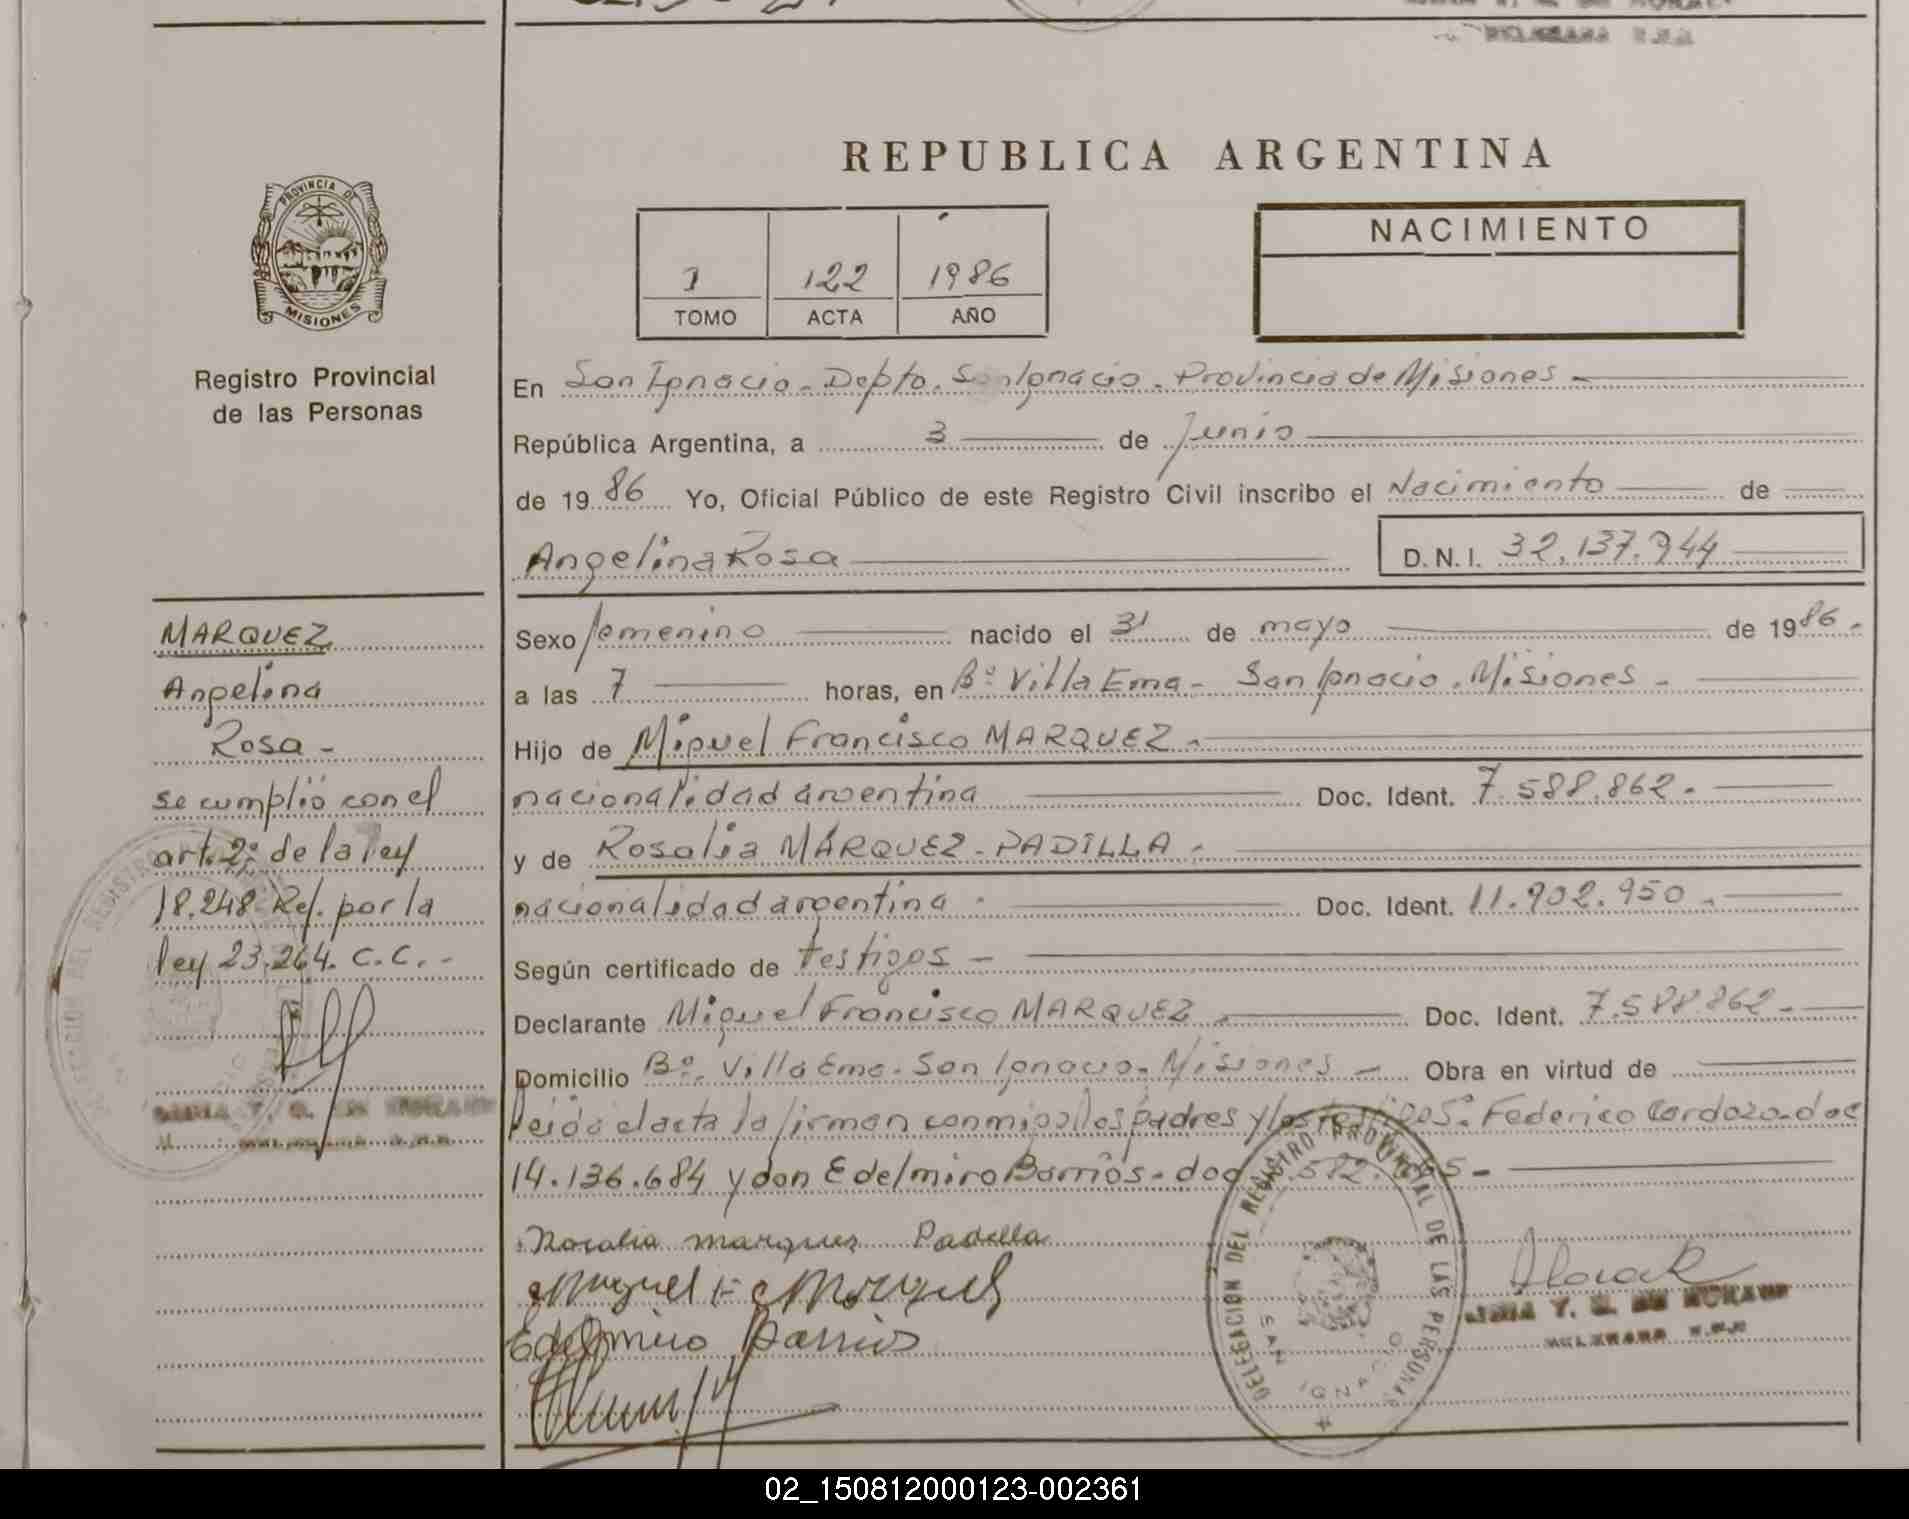 REPUBLICA ARGENTINA
PROVINCIA DE
MISIONES
Registro Provincial
de las Personas
1 122 1986
TOMO ACTA AÑO
NACIMIENTO
En San Ignacio - Depto. San Ignacio - Provincia de Misiones -
República Argentina, a 3 de Junio
de 1986 Yo, Oficial Público de este Registro Civil inscribo el Nacimiento de
Angelina Rosa D.N.I. 32.137.944
MARQUEZ
Angelina
Rosa -
se cumplió con el
art. 2º de la ley
18.248 Ref. por la
ley 23.264. C.C. -
Sexo femenino nacido el 31 de mayo de 1986.
a las 7 horas, en Bº Villa Ema - San Ignacio. Misiones -
Hijo de Miguel Francisco MARQUEZ -
nacionalidad argentina Doc. Ident. 7.588.862.
y de Rosalia MARQUEZ - PADILLA -
nacionalidad argentina Doc. Ident. 11.902.950.
Según certificado de testigos -
Declarante Miguel Francisco MARQUEZ Doc. Ident. 7.588.862 -
Domicilio Bº. Villa Ema. San Ignacio. Misiones - Obra en virtud de
leida el acta la firman conmigo los padres y los testigos: Federico Cardozo - doc
14.136.684 y don Edelmiro Barrios - doc
Rosalia Marquez Padilla
Miguel F. Marquez
Edelmiro Barrios
DELEGACION DEL REGISTRO PROVINCIAL DE LAS PERSONAS
SAN IGNACIO
02_150812000123-002361